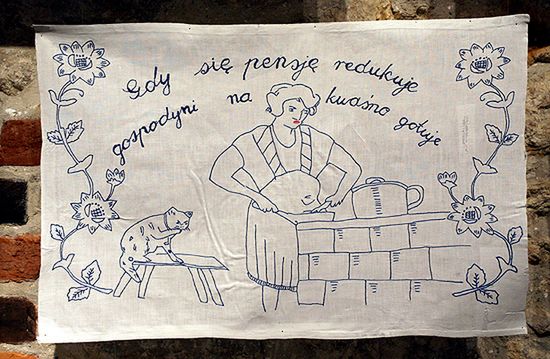 Gdy się pensję redukuje
gospodyni na kwaśno gotuje